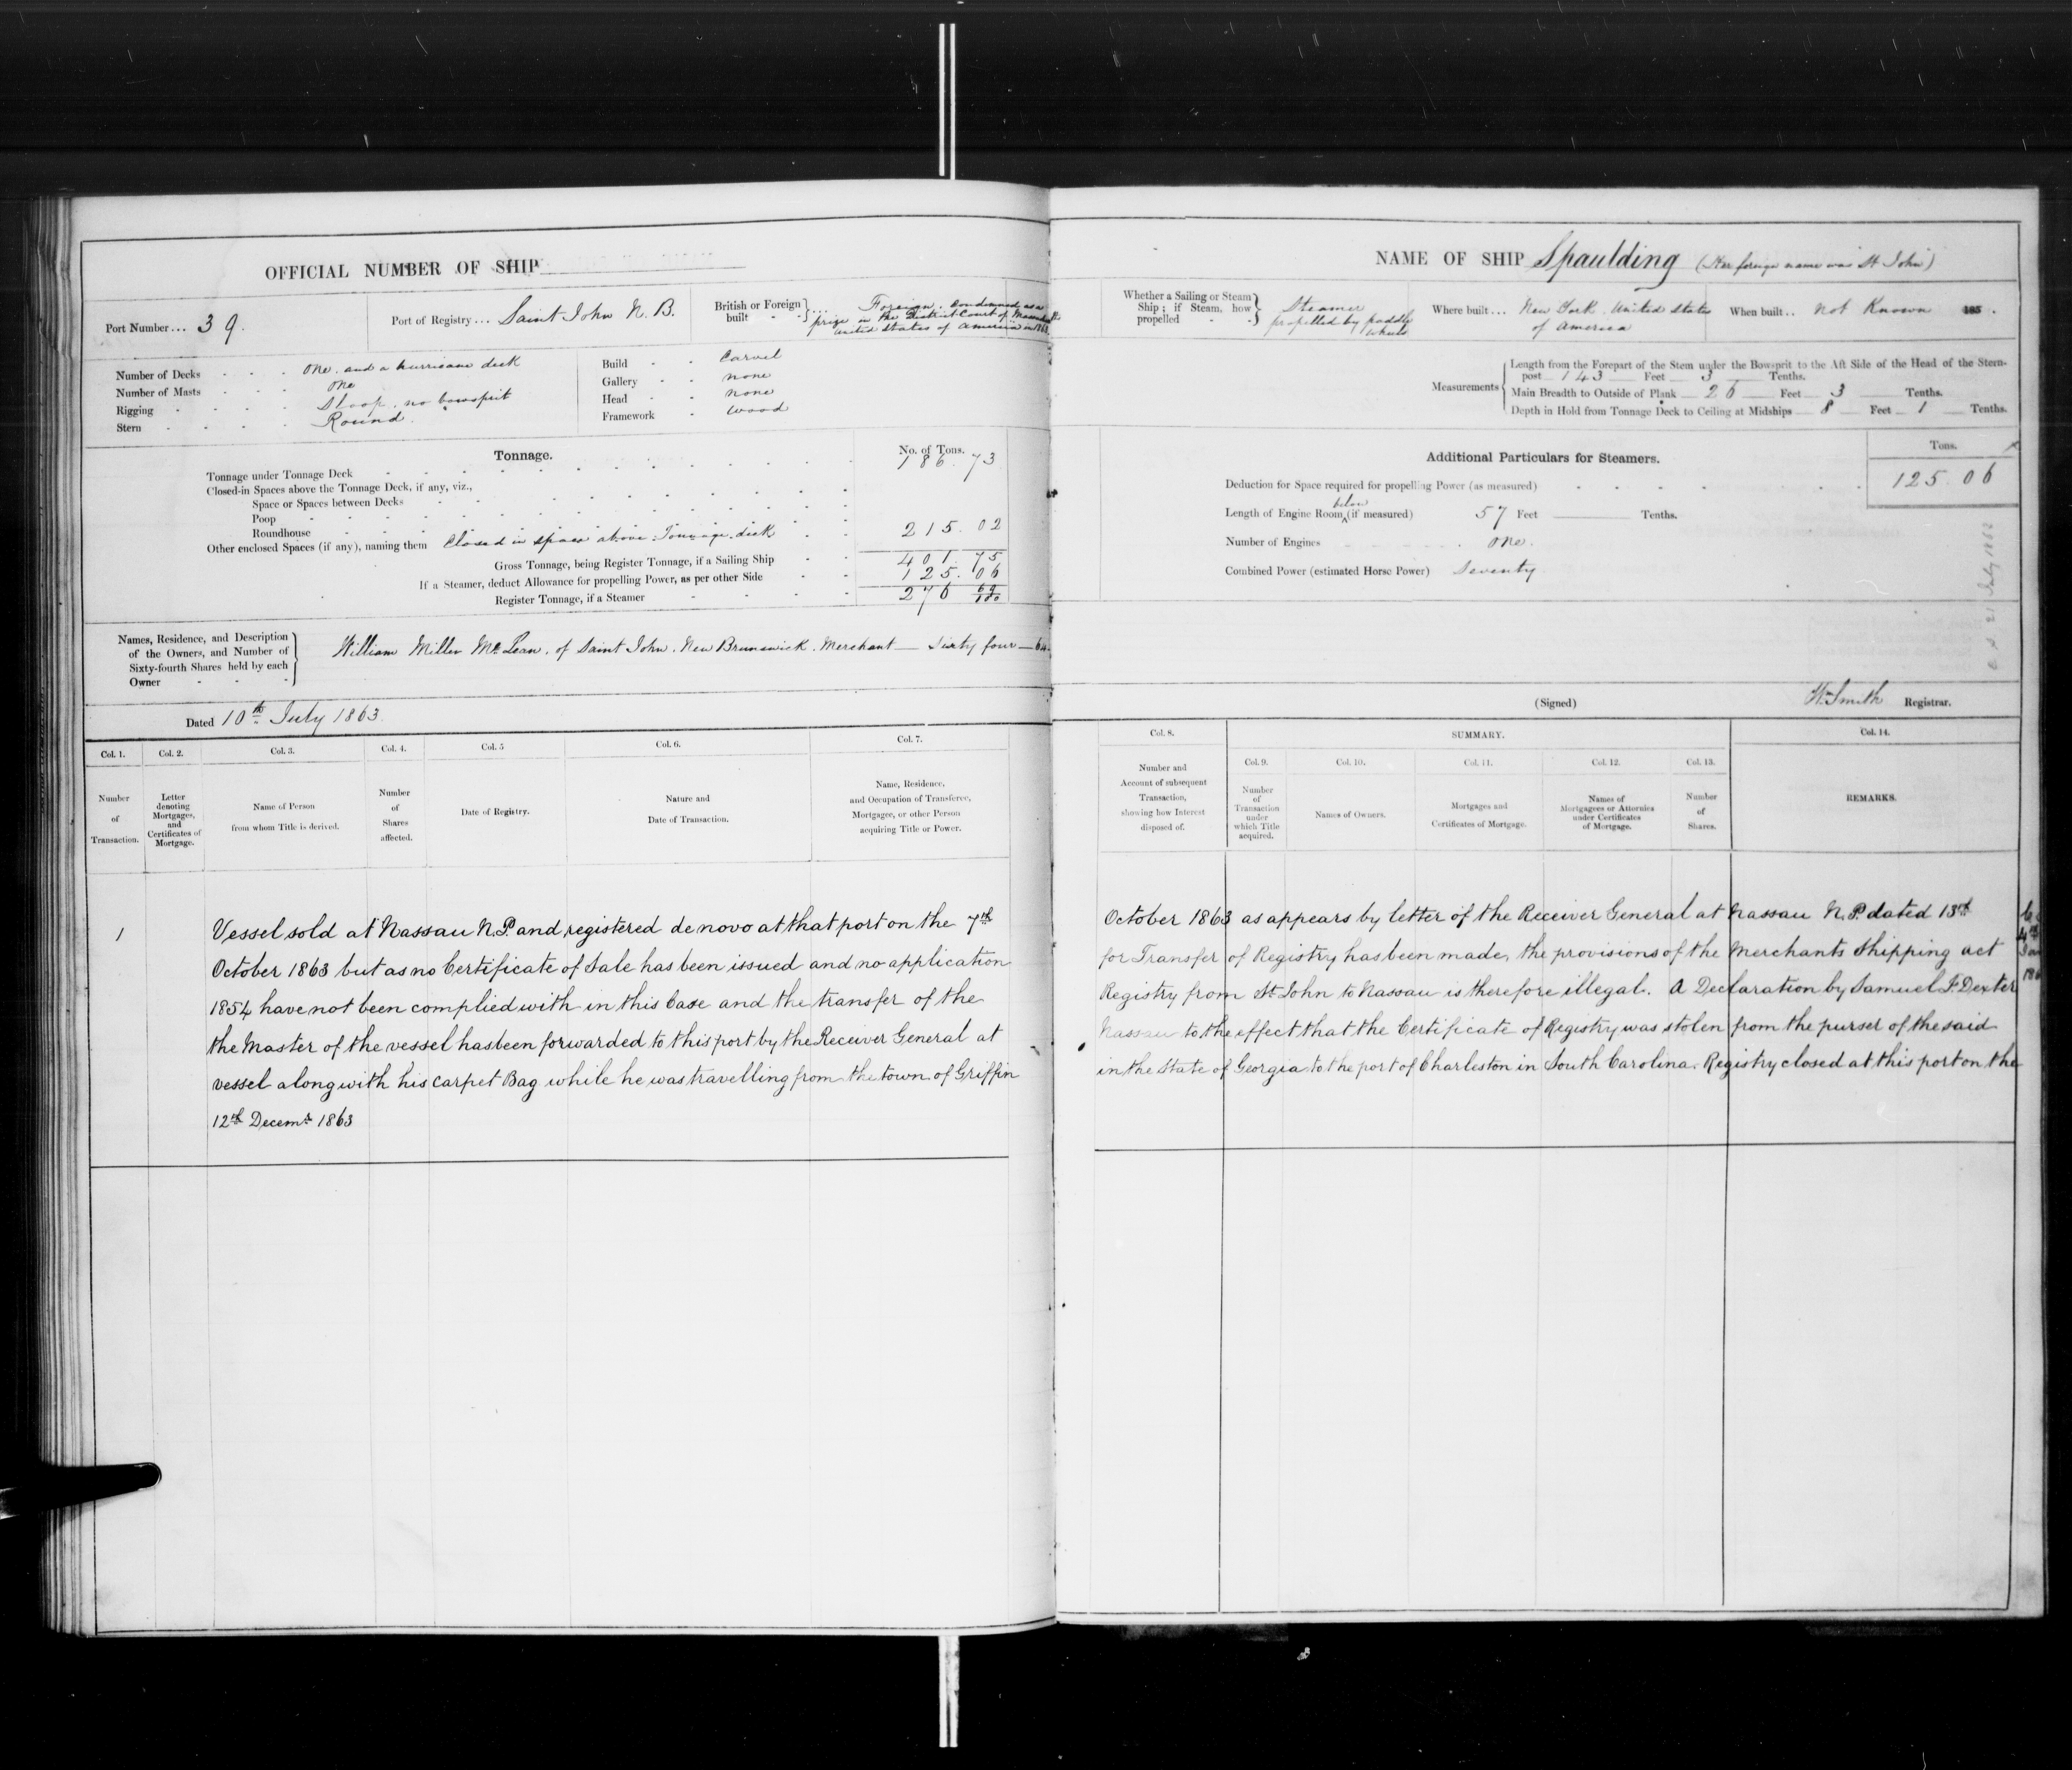 OFFICIAL NUMBER OF SHIP
Port Number... 39.
Port of Registry... Saint John N. B.
British or Foreign built - - } ... Foreign. Condemned as a
prize in the District Court of
United States of America in 1863
Number of Decks - - - One. and a hurricane deck
Number of Masts - - - One
Rigging - - - - Sloop. no bowsprit
Stern - - - - Round.
Build - - Carvel
Gallery - - none
Head - - none
Framework - wood
Tonnage.
No. of Tons.
Tonnage under Tonnage Deck 186.73
Closed-in Spaces above the Tonnage Deck, if any, viz.,
Space or Spaces between Decks
Poop
Roundhouse
Other enclosed Spaces (if any), naming them Closed in space above Tonnage deck 215.02
Gross Tonnage, being Register Tonnage, if a Sailing Ship 401.75
If a Steamer, deduct Allowance for propelling Power, as per other Side 125.06
Register Tonnage, if a Steamer 276 69/100
Names, Residence, and Description
of the Owners, and Number of
Sixty-fourth Shares held by each
Owner - - - }
William Miller McLean, of Saint John, New Brunswick. Merchant — Sixty four — 64.
Dated 10th July 1863.
Col. 1.
Number
of
Transaction.
Col. 2.
Letter
denoting
Mortgages,
and
Certificates of
Mortgage.
Col. 3.
Name of Person
from whom Title is derived.
Col. 4.
Number
of
Shares
affected.
Col. 5
Date of Registry.
Col. 6.
Nature and
Date of Transaction.
Col. 7.
Name, Residence,
and Occupation of Transferee,
Mortgagee, or other Person
acquiring Title or Power.
NAME OF SHIP Spaulding (Her foreign name was St John)
Whether a Sailing or Steam
Ship; if Steam, how
propelled - - }
Steamer
propelled by paddle
wheels
Where built... New York. United States
of America
When built.. Not Known 185 .
Measurements { Length from the Forepart of the Stem under the Bowsprit to the Aft Side of the Head of the Stern-
post 143 Feet 3 Tenths.
Main Breadth to Outside of Plank 26 Feet 3 Tenths.
Depth in Hold from Tonnage Deck to Ceiling at Midships 8 Feet 1 Tenths.
Additional Particulars for Steamers.
Tons.
Deduction for Space required for propelling Power (as measured) 125.06
below
Length of Engine Room ^ (if measured) 57 Feet — Tenths.
Number of Engines One.
Combined Power (estimated Horse Power) Seventy
21 July 1863
(Signed) Wm Smith Registrar.
Col. 8.
Number and
Account of subsequent
Transaction,
showing how Interest
disposed of.
SUMMARY.
Col. 9.
Number
of
Transaction
under
which Title
acquired.
Col. 10.
Names of Owners.
Col. 11.
Mortgages and
Certificates of Mortgage.
Col. 12.
Names of
Mortgagees or Attornies
under Certificates
of Mortgage.
Col. 13.
Number
of
Shares.
Col. 14.
REMARKS.
1 Vessel sold at Nassau N.P. and registered de novo at that port on the 7th October 1863 as appears by letter of the Receiver General at Nassau N.P. dated 13th
October 1863 but as no Certificate of Sale has been issued and no application for Transfer of Registry has been made, the provisions of the Merchants Shipping act
1854 have not been complied with in this Case and the transfer of the Registry from St. John to Nassau is therefore illegal. A Declaration by Samuel F. Dexter
the Master of the vessel has been forwarded to this port by the Receiver General at Nassau to the effect that the Certificate of Registry was stolen from the purser of the said
vessel along with his Carpet Bag while he was travelling from the town of Griffin in the State of Georgia to the port of Charleston in South Carolina. Registry closed at this port on the
12th Decemr 1863
4th